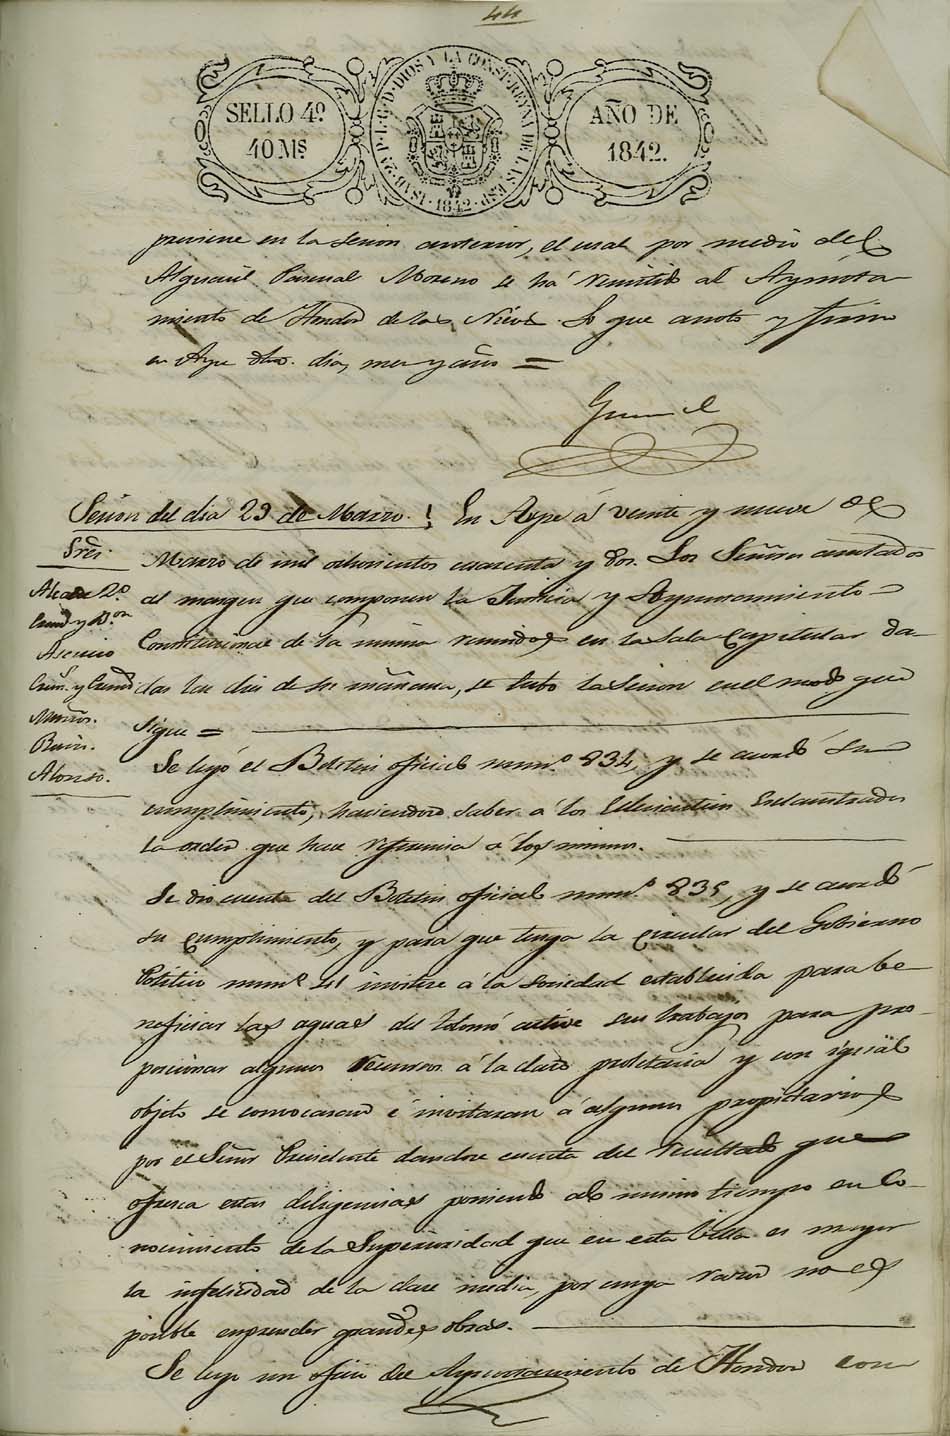 44
SELLO 4º
40 Ms
ISAB. 2ª P. L. G. D. DIOS Y LA CONST. REYNA DE LAS ESP. 1842.
AÑO DE
1842.
previene en la sesion anterior, el cual por medio del
Alguacil Pascual Moreno se há remitido al Ayunta
miento de Hondon de las Nieves. Lo que anoto y firmo
en Aspe dho. dia, mes y año =
Sesion del dia 29 de Marzo. En Aspe á veinte y nueve de
Sres.
Alcalde 2º
Asencio
Muñoz.
Alonso.
Marzo de mil ochocientos cuarenta y dos. Los Señores anotados
al margen que componen la Justicia y Ayuntamiento
Constitucional de la misma reunidos en la Sala Capitular da-
das las diez de su mañana, se tubo la sesion en el modo que
sigue =
Se leyó el Boletin oficial num.º 834, y se acordó su
cumplimiento, haciendose saber á los
la orden que hace referencia á los mismos.
Se dio cuenta del Boletin oficial num.º 835, y se acordó
su cumplimiento, y para que tenga la circular del Gobierno
Politico num.º invitese á la sociedad establecida para be-
neficiar las aguas del active sus trabajos para pro-
porcionar algunos recursos á la clase proletaria y con igual
objeto se convocaran é invitaran á algunos propietarios
por el Señor Presidente dandose cuenta del resultado que
ofresca estas diligencias poniendo al mismo tiempo en co-
nocimiento de la Superioridad que en esta Villa es mayor
la infelicidad de la clase media, por cuya razon no es
posible emprender grandes obras.
Se leyó un oficio del Ayuntamiento de Hondon con